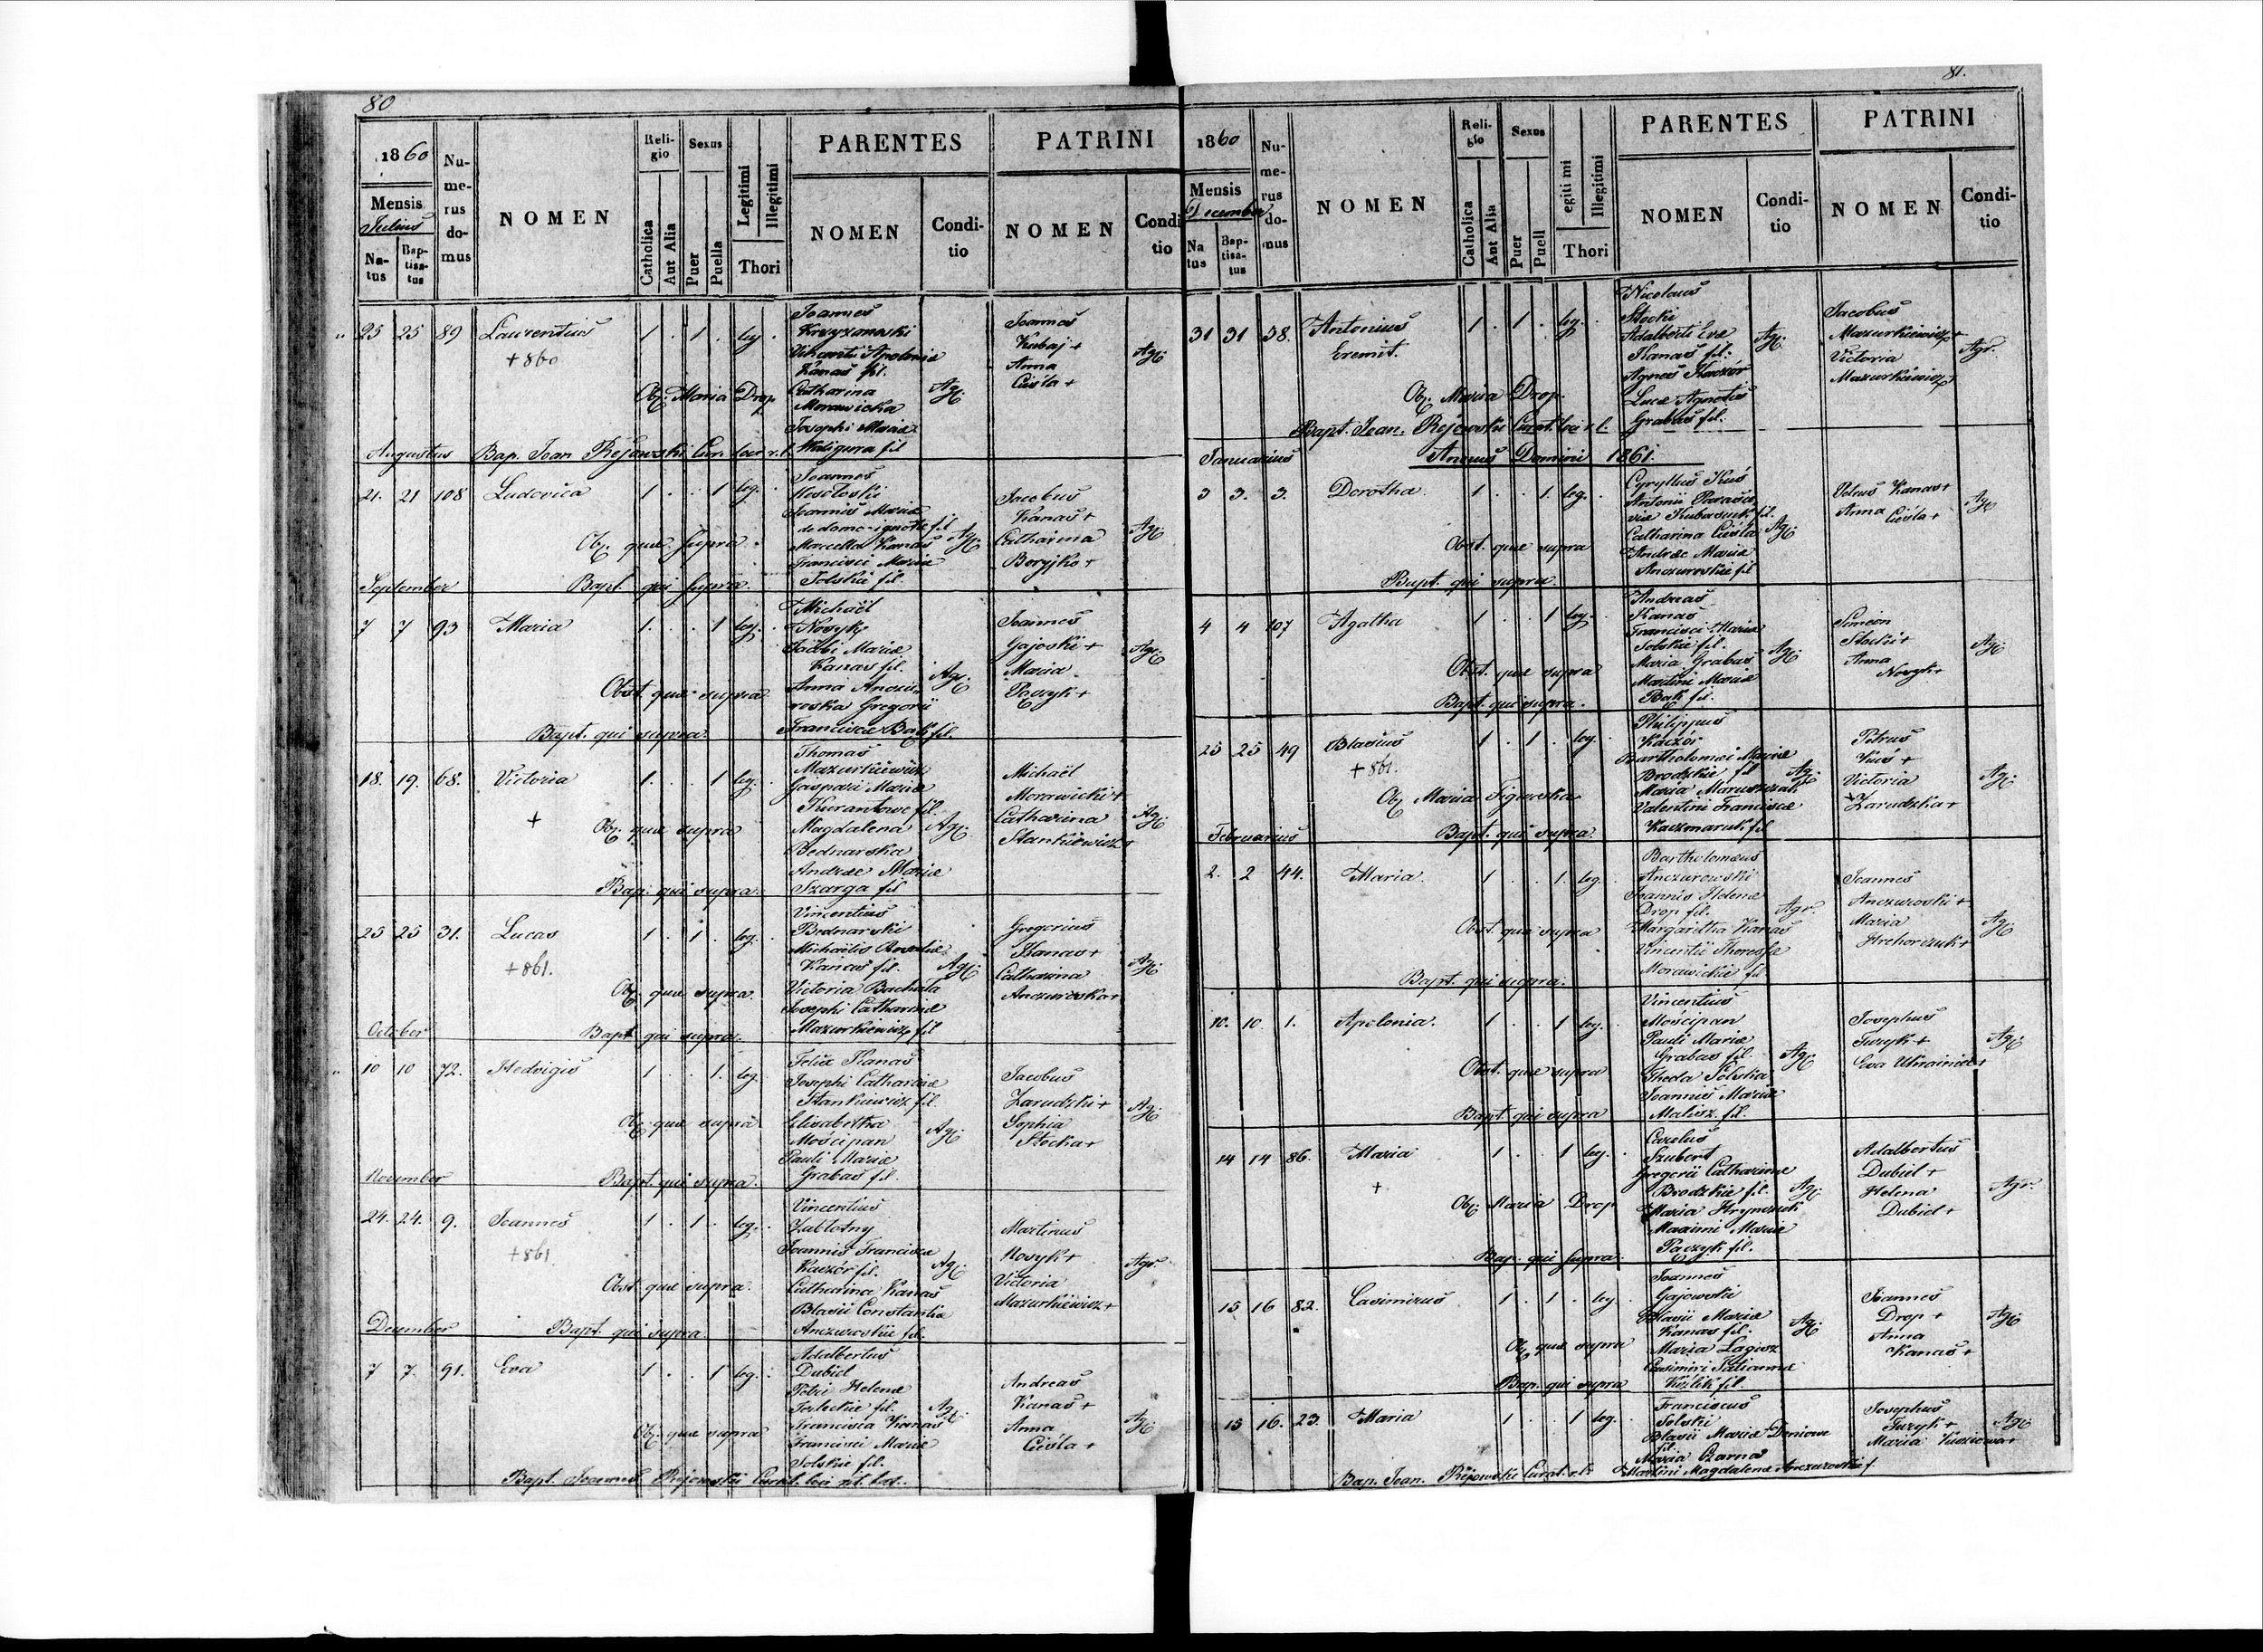 80
1860
Mensis
Julius
Na-
tus
Bap-
tisa-
tus
Nu-
me-
rus
do-
mus
NOMEN
Reli-
gio
Catholica
Aut Alia
Sexus
Puer
Puella
Legitimi
Illegitimi
Thori
PARENTES
NOMEN
Condi-
tio
PATRINI
NOMEN
Condi
tio
25 25 89 Laurentius 1 . 1 . leg .
+860
Joannes
Krzyzanoski
Vincentii Apolonia
Kanas fil.
Catharina
Morawicka
Josephi Mariae
Waligura fil
Agr.
Joannes
Kubaj +
Anna
Cieśla +
Agr.
Obs. Maria Drop
Augustus Bap. Joan Rejowski Cur. loci r.l.
21. 21 108 Ludovica 1 . . 1 leg.
Joannes
Kosełoski
Joannis Mariae
de domo ignotae fil
Marcella Kanas
Francisci Mariae
Solskie fil
Agr.
Jacobus
Kanas +
Catharina
Boryjko +
Agr.
Obs. quae supra.
September Bapt. qui supra.
7 7 93 Maria 1. . . 1 leg.
Michaël
Nosyk
Jacobi Mariae
Kanas fil.
Anna Anczu-
roska Gregorii
Franciscae Bak fil.
Agr.
Joannes
Gajoski +
Maria
Paczyk +
Agr.
Obst. quae supra
Bapt. qui supra.
18. 19. 68. Victoria 1. . . 1 leg.
+
Thomas
Mazurkiewicz
Gaspari Mariae
Kurantowe fil.
Magdalena
Bednarska
Andreae Mariae
Szarga fil
Agr.
Michaël
Morawicki +
Catharina
Stankiewicz +
Agr.
Obs. quae supra
Bap. qui supra.
25 25 31. Lucas 1 . 1 . leg.
+861.
Vincentius
Bednarski
Michaëlis Rosaliae
Kanas fil.
Victoria Bachała
Josephi Catharinae
Mazurkiewicz fil
Agr.
Gregorius
Kanas +
Catharina
Anczuroska +
Agr.
Obs. quae supra.
October Bapt qui supra.
10 10 72. Hedvigis 1 . . 1. leg
Felix Kanas
Josephi Catharinae
Stankiewicz fil.
Elisabetha
Mościpan
Pauli Mariae
Grabas fil.
Agr.
Jacobus
Zarudzki +
Sophia
Stocka +
Agr.
Obs. quae supra
November Bapt. qui supra.
24. 24. 9. Joannes 1 . 1 . leg.
+861
Vincentius
Zabłotny
Joannis Franciscae
Kaczór fil.
Catharina Kanas
Blasii Constantia
Anczuroskie fil.
Agr.
Martinus
Nosyk +
Victoria
Mazurkiewicz +
Agr.
Obst. quae supra.
December Bapt. qui supra.
7 7. 91. Eva 1 . . 1 leg.
Adalbertus
Dubiel
Petri Helenae
Torleckie fil.
Francisca Kanas
Francisci Mariae
Solskie fil.
Agr.
Andreas
Kanas +
Anna
Cieśla +
Agr.
Obs. quae supra
Bapt. Joannes Rejowski Curat. loci rit. lat.
81.
1860
Mensis
December
Na
tus
Bap-
tisa-
tus
Nu-
me-
rus
do-
mus
NOMEN
Reli-
gio
Catholica
Aut Alia
Sexus
Puer
Puell
egiti mi
Illegitimi
Thori
PARENTES
NOMEN
Condi-
tio
PATRINI
NOMEN
Condi-
tio
31 31 38. Antonius 1 . 1 . leg.
Eremit.
Nicolaus
Stocki
Adalberti Evae
Kanas fil.
Agnes Kaczór
Lucae Agnetis
Grabas fil.
Agr.
Jacobus
Mazurkiewicz +
Victoria
Mazurkiewicz
Agr.
Obs. Maria Drop.
Bapt. Joan. Rejowski Curat. loci r.l.
Januarius Annus Domini 1861.
3 3. 3. Dorotha 1 . . 1. leg.
Cyryllus Kuś
Antonii Parasce
viae Kubasiuk fil.
Catharina Cieśla
Andreae Mariae
Anczuroskie fil
Agr.
Petrus Kanas +
Anna Cieśla +
Agr.
Obst. quae supra
Bapt. qui supra.
4 4 107 Agatha 1 . . 1 leg.
Andreas
Kanas
Francisci Mariae
Solskie fil.
Maria Grabas
Martini Mariae
Bąk fil.
Agr.
Simeon
Stocki +
Anna
Nosyk +
Agr.
Obst. quae supra
Bapt. qui supra.
25 25 49 Blasius 1 . 1 . leg.
+861.
Philippus
Kaczór
Bartholomei Mariae
Brodzkie fil
Maria Maruszczak
Valentini Franciscae
Kaczmaruk fil
Agr.
Petrus
Kuś +
Victoria
Zarudzka +
Agr.
Obs. Maria Figurska
Februarius Bapt. qui supra.
2. 2 44. Maria. 1 . . 1. leg.
Bartholomeus
Anczuroski
Joannis Helenae
Drop fil.
Margaritha Kanas
Vincentii Theresia
Morawickie fil
Agr.
Joannes
Anczuroski +
Maria
Hrehorczuk +
Agr.
Obst. quae supra
Bapt. qui supra.
10. 10. 1. Apolonia. 1 . . 1 leg.
Vincentius
Mościpan
Pauli Mariae
Grabas fil.
Theda Solska
Joannis Mariae
Malisz fil.
Agr.
Josephus
Juzyk +
Eva Ukrainiec +
Agr.
Obst. quae supra
Bapt. qui supra
14 14 86. Maria 1 . . 1 leg.
+
Carolus
Szubert
Gregorii Catharinae
Brodzkie fil.
Maria Hrynczuk
Maximi Mariae
Paczyk fil.
Agr.
Adalbertus
Dubiel +
Helena
Dubiel +
Agr.
Obs. Maria Drop
Bap. qui supra.
15 16 82. Casimirus 1 . 1 . leg
Joannes
Gajowski
Blasii Mariae
Kanas fil.
Maria Lagisz
Casimiri Julianna
Koźlik fil.
Agr.
Joannes
Drop +
Anna
Kanas +
Agr.
Obs. quae supra
Bap. qui supra
15 16. 23. Maria 1 . . 1 leg.
Franciscus
Solski
Blasii Mariae
fil.
Maria Czarna
Martini Magdalena Anczuroskie f.
Josephus
Juzyk +
Maria
Agr.
Bap. Joan. Rejowski Curat. r.l.